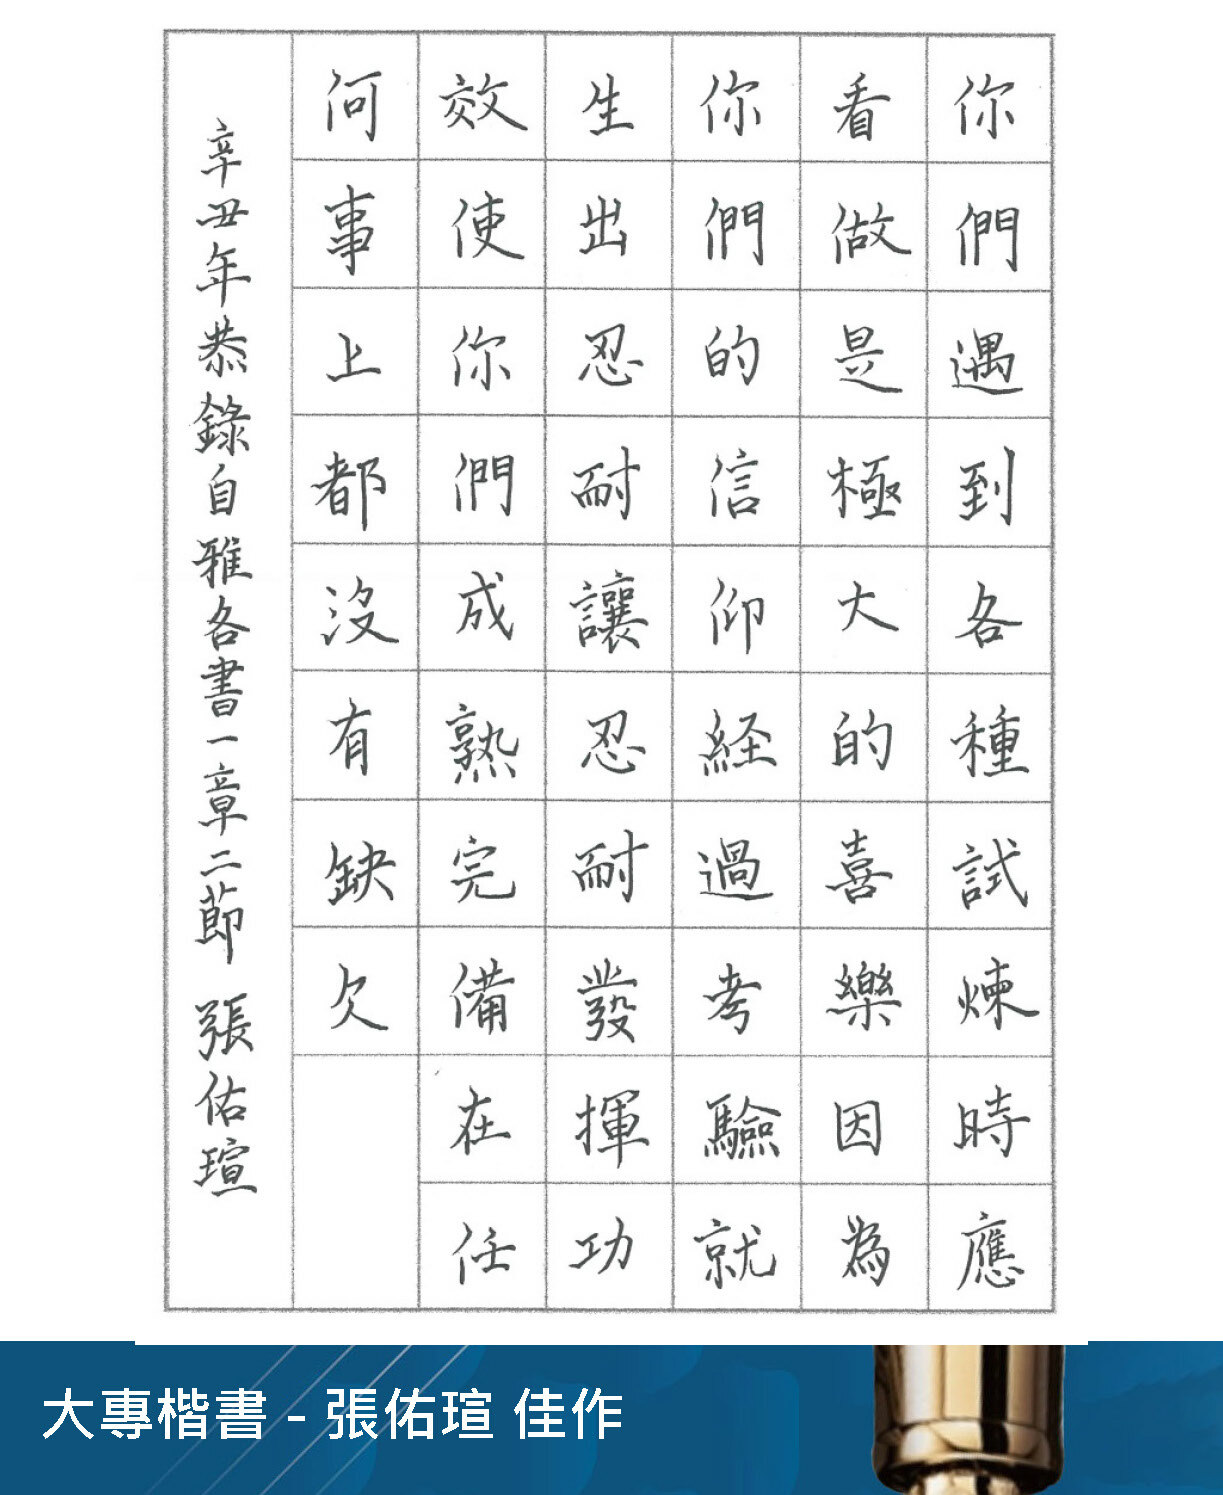 你們遇到各種試煉時應
看做是極大的喜樂因為
你們的信仰経過考驗就
生出忍耐讓忍耐發揮功
效使你們成熟完備在任
何事上都沒有缺欠
辛丑年恭錄自雅各書一章二節 張佑瑄
大專楷書 - 張佑瑄 佳作